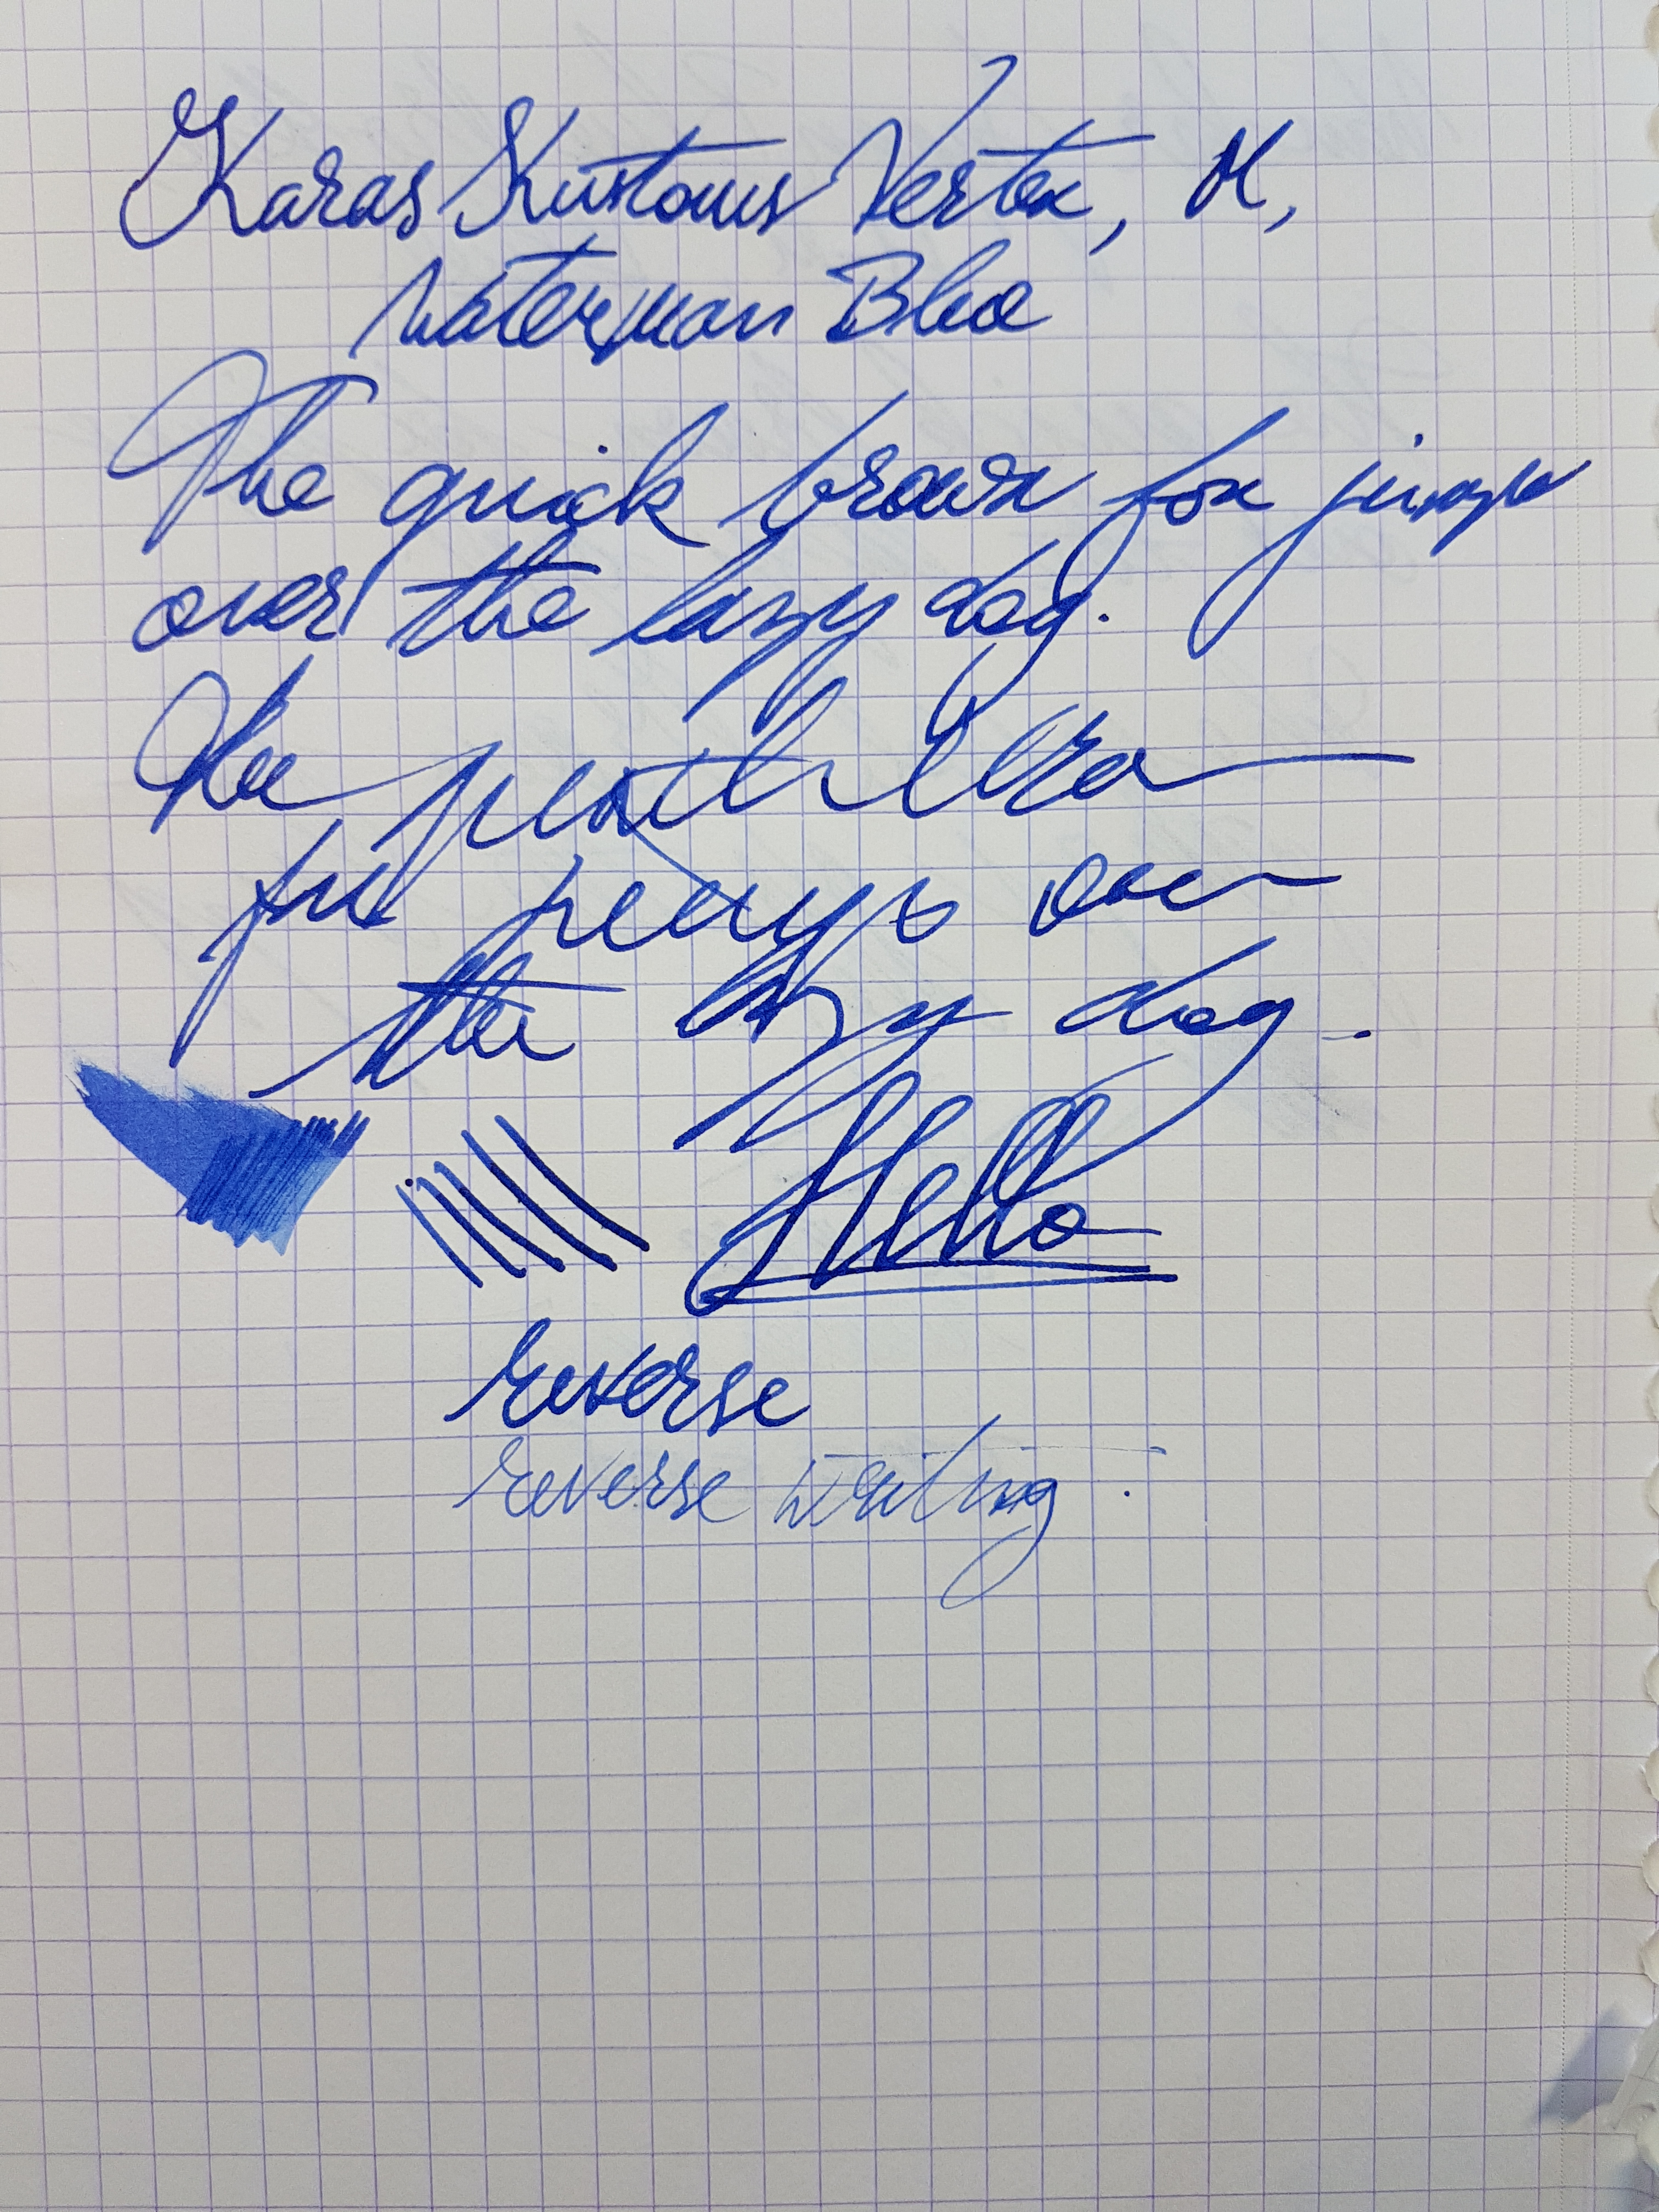 Karas Kustoms Vertex, M,
Waterman Blue
The quick brown fox jumps
over the lazy dog.
The quick brown
fox jumps over
the lazy dog.
Hello
reverse
reverse writing.